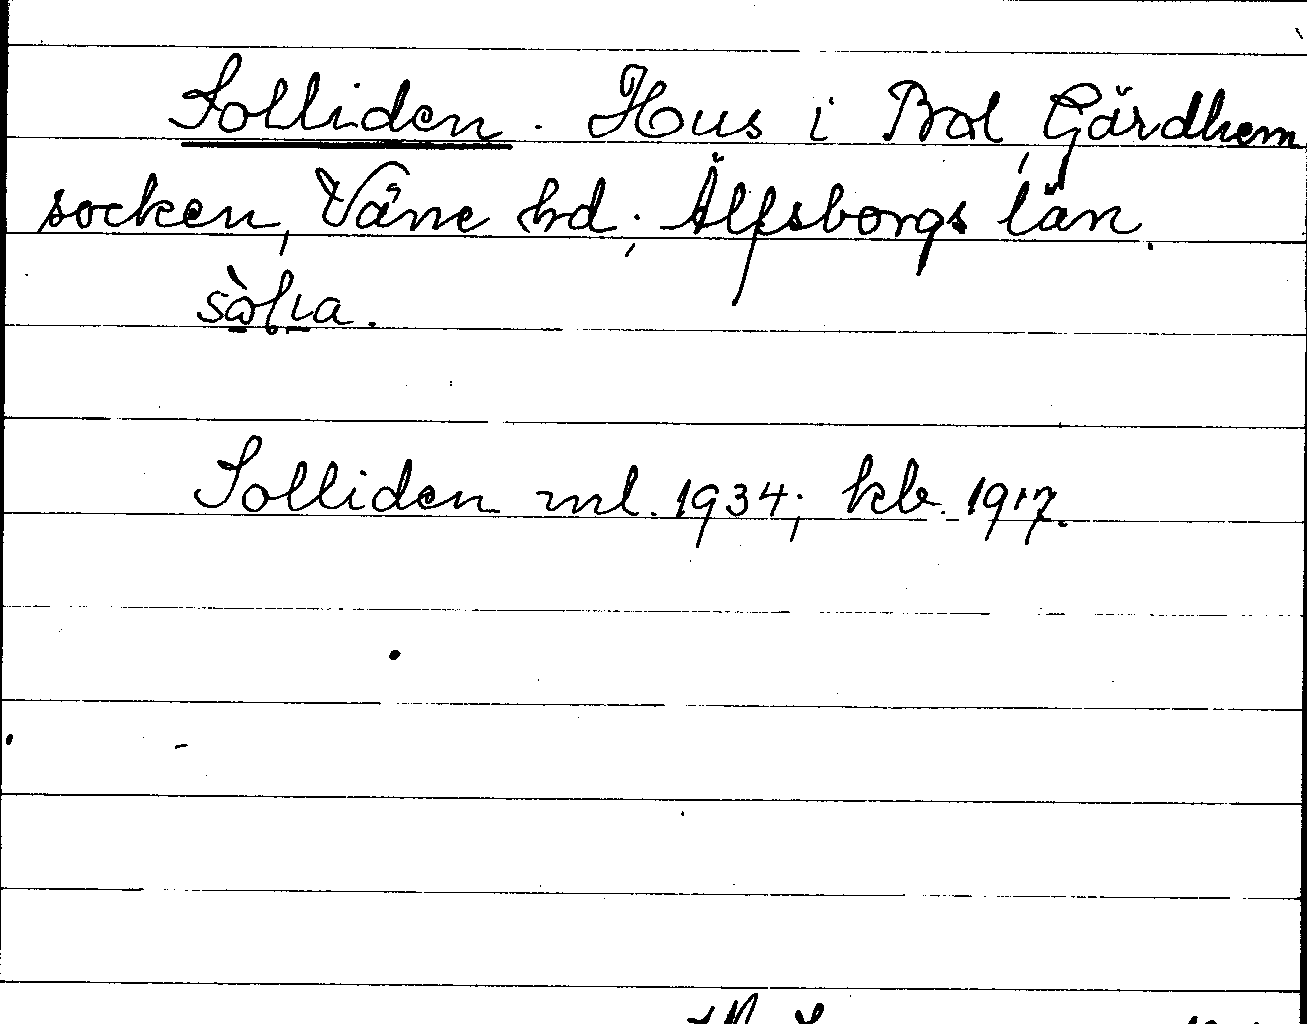 Solliden. Hus i Bol, Gärdhem
socken, Väne hd; Älfsborgs län.
Solliden ml. 1934; kb. 1917.